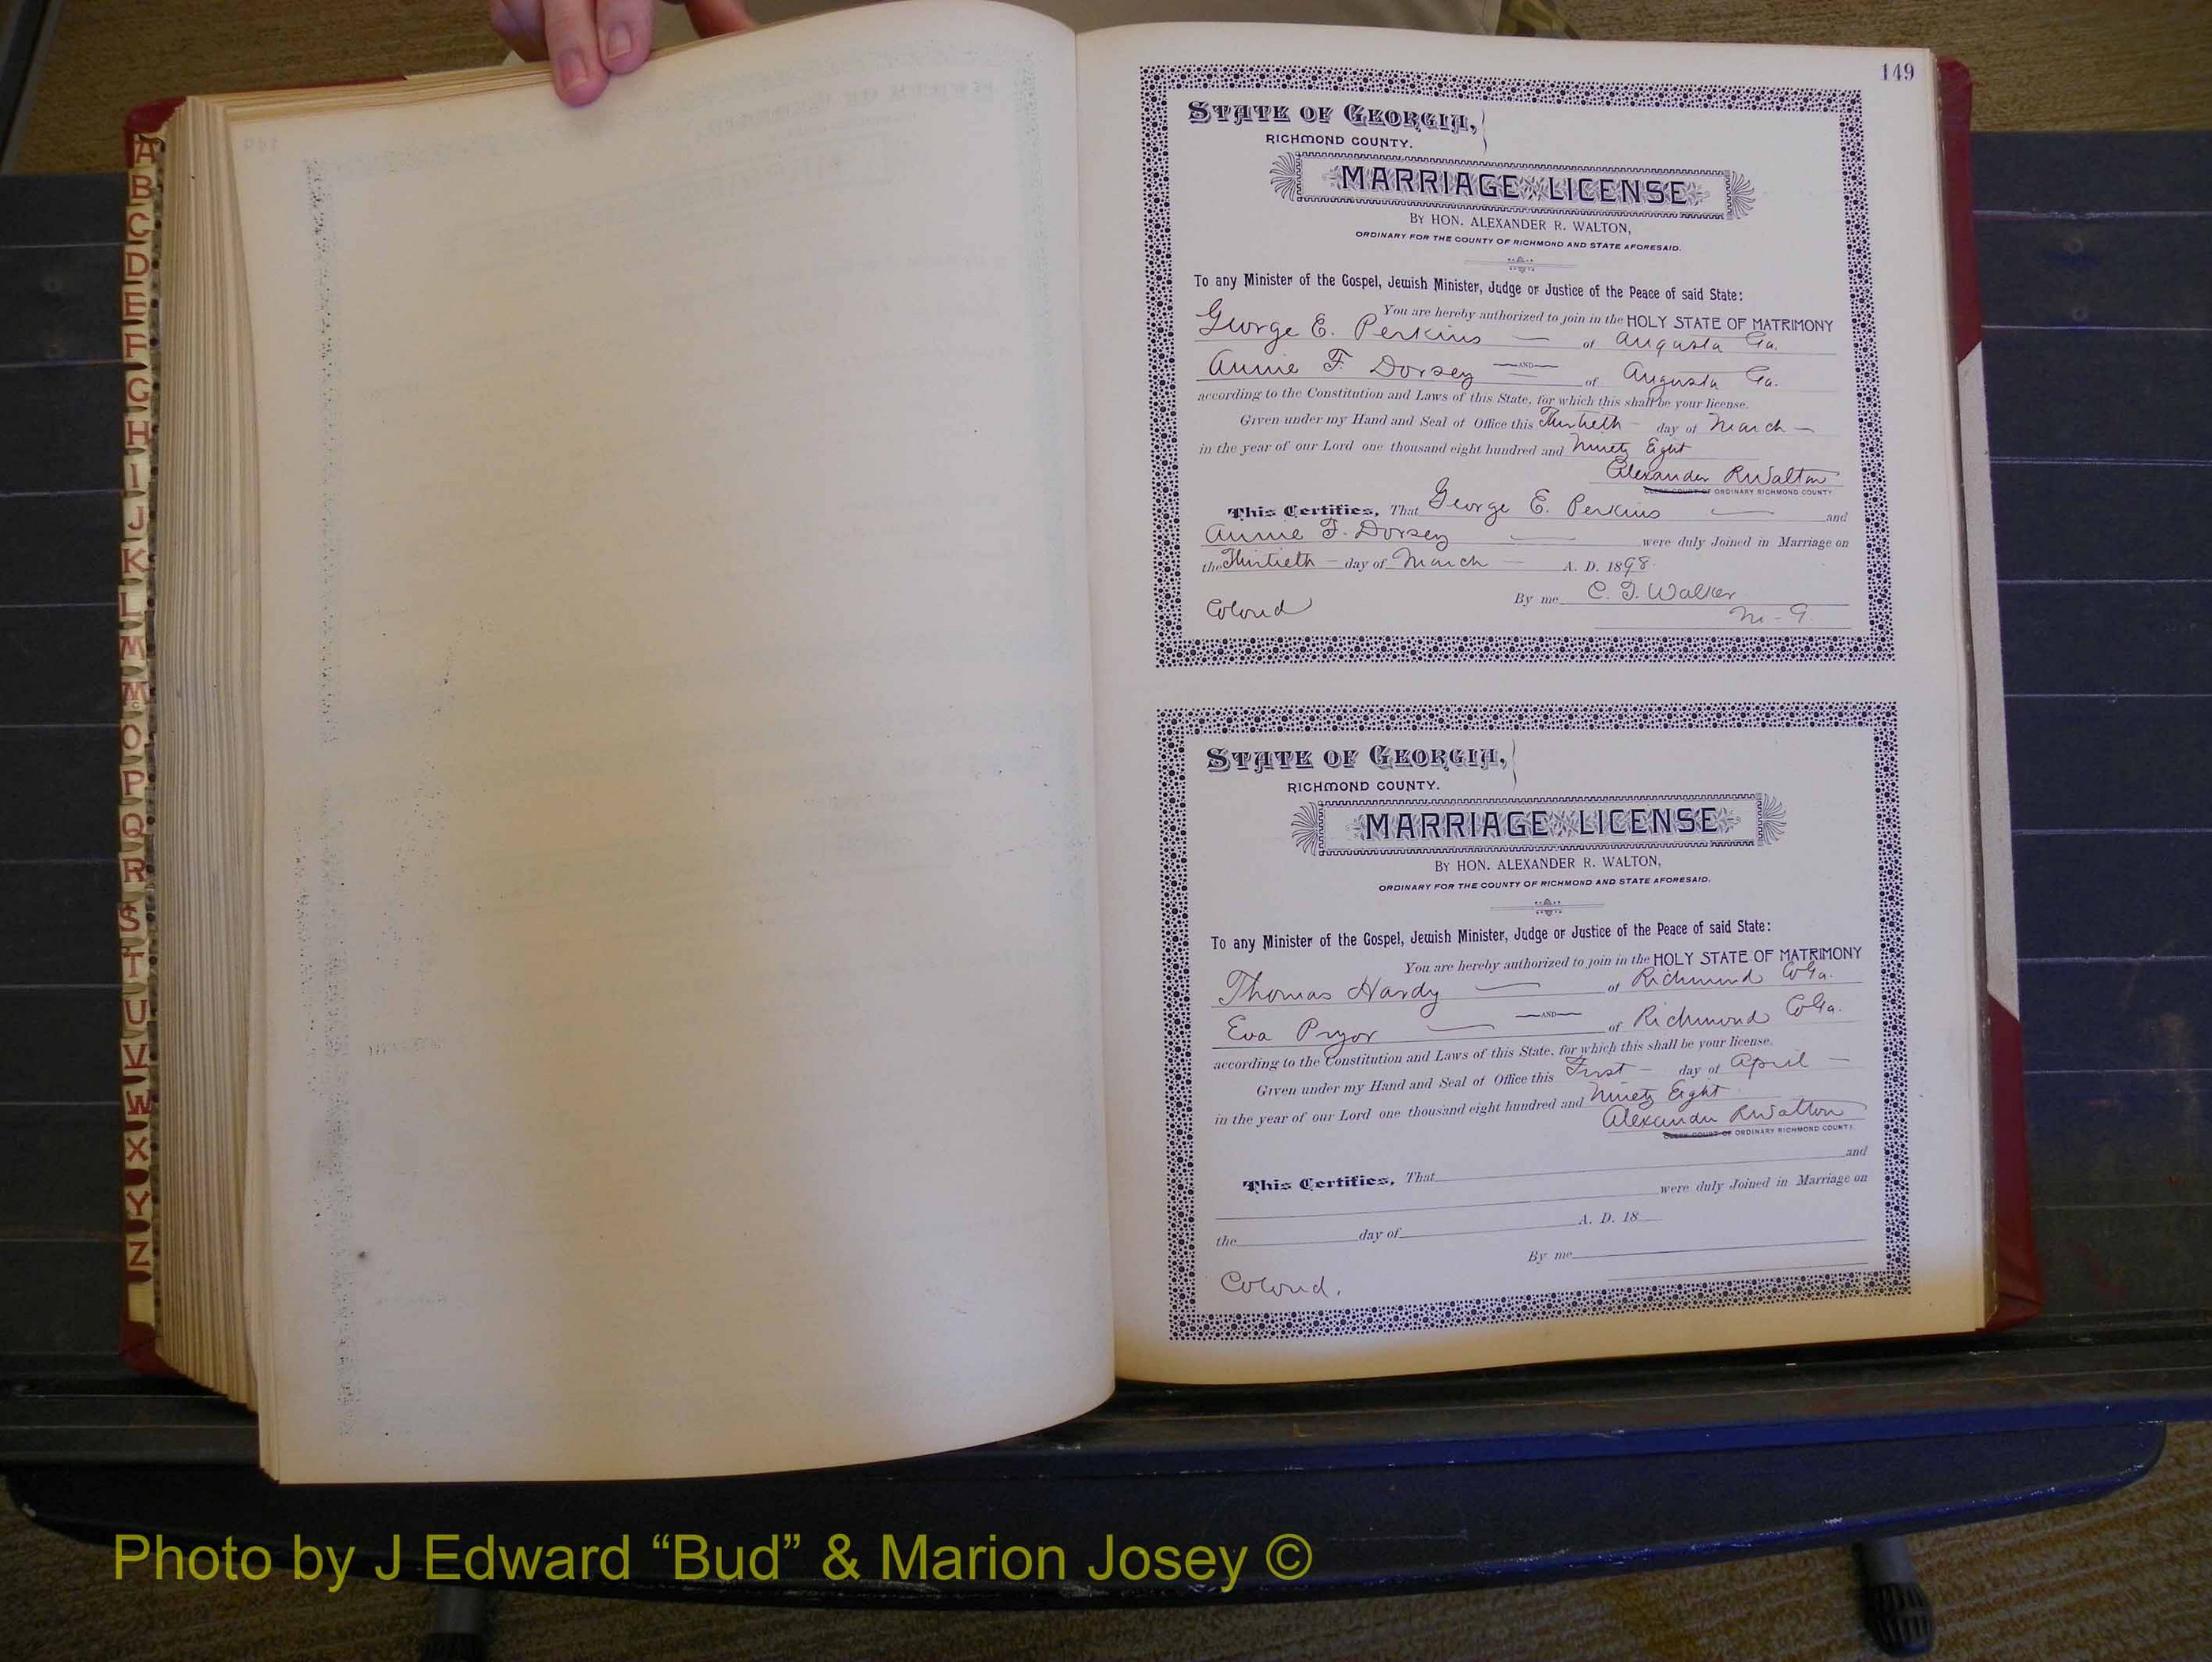 149
STATE OF GEORGIA,
RICHMOND COUNTY.
MARRIAGE LICENSE
BY HON. ALEXANDER R. WALTON,
ORDINARY FOR THE COUNTY OF RICHMOND AND STATE AFORESAID.
To any Minister of the Gospel, Jewish Minister, Judge or Justice of the Peace of said State:
You are hereby authorized to join in the HOLY STATE OF MATRIMONY
George E. Perkins — of Augusta Ga.
AND
Annie F. Dorsey of Augusta Ga.
according to the Constitution and Laws of this State, for which this shall be your license.
Given under my Hand and Seal of Office this Thirtieth — day of March —
in the year of our Lord one thousand eight hundred and Ninety Eight
Alexander R Walton
CLERK COURT OF ORDINARY RICHMOND COUNTY
This Certifies, That George E. Perkins — and
Annie F. Dorsey — were duly Joined in Marriage on
the Thirtieth — day of March — A. D. 1898.
By me C. T. Walker
Colored M-G.
STATE OF GEORGIA,
RICHMOND COUNTY.
MARRIAGE LICENSE
BY HON. ALEXANDER R. WALTON,
ORDINARY FOR THE COUNTY OF RICHMOND AND STATE AFORESAID.
To any Minister of the Gospel, Jewish Minister, Judge or Justice of the Peace of said State:
You are hereby authorized to join in the HOLY STATE OF MATRIMONY
Thomas Hardy — of Richmond Co Ga.
AND
Eva Pryor — of Richmond Co Ga.
according to the Constitution and Laws of this State, for which this shall be your license.
Given under my Hand and Seal of Office this First — day of April —
in the year of our Lord one thousand eight hundred and Ninety Eight
Alexander R Walton
CLERK COURT OF ORDINARY RICHMOND COUNTY.
This Certifies, That and
were duly Joined in Marriage on
the day of A. D. 18
By me
Colored.
A
B
C
D
E
F
G
H
I
J
K
L
M
Mc
O
P
Q
R
S
T
U
V
W
X
Y
Z
Photo by J Edward “Bud” & Marion Josey ©